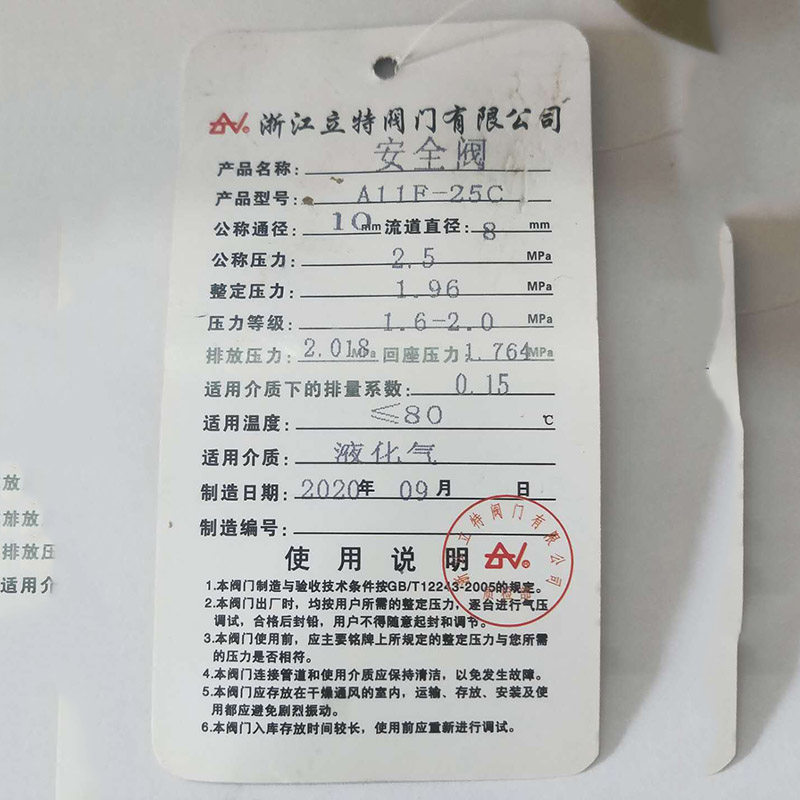 浙江立特阀门有限公司
产品名称: 安全阀
产品型号: A11F-25C
公称通径: 10 mm 流道直径: 8 mm
公称压力: 2.5 MPa
整定压力: 1.96 MPa
压力等级: 1.6-2.0 MPa
排放压力: 2.018 MPa 回座压力: 1.764 MPa
适用介质下的排量系数: 0.15
适用温度: ≤80 ℃
适用介质: 液化气
制造日期: 2020年 09月 日
制造编号:
使用说明
1.本阀门制造与验收技术条件按GB/T12243-2005的规定。
2.本阀门出厂时，均按用户所需的整定压力，逐台进行气压
调试，合格后封铅，用户不得随意起封和调节。
3.本阀门使用前，应主要铭牌上所规定的整定压力与您所需
的压力是否相符。
4.本阀门连接管道和使用介质应保持清洁，以免发生故障。
5.本阀门应存放在干燥通风的室内，运输、存放、安装及使
用都应避免剧烈振动。
6.本阀门入库存放时间较长，使用前应重新进行调试。
立特阀门有限公司
放
排放
排放压
适用介